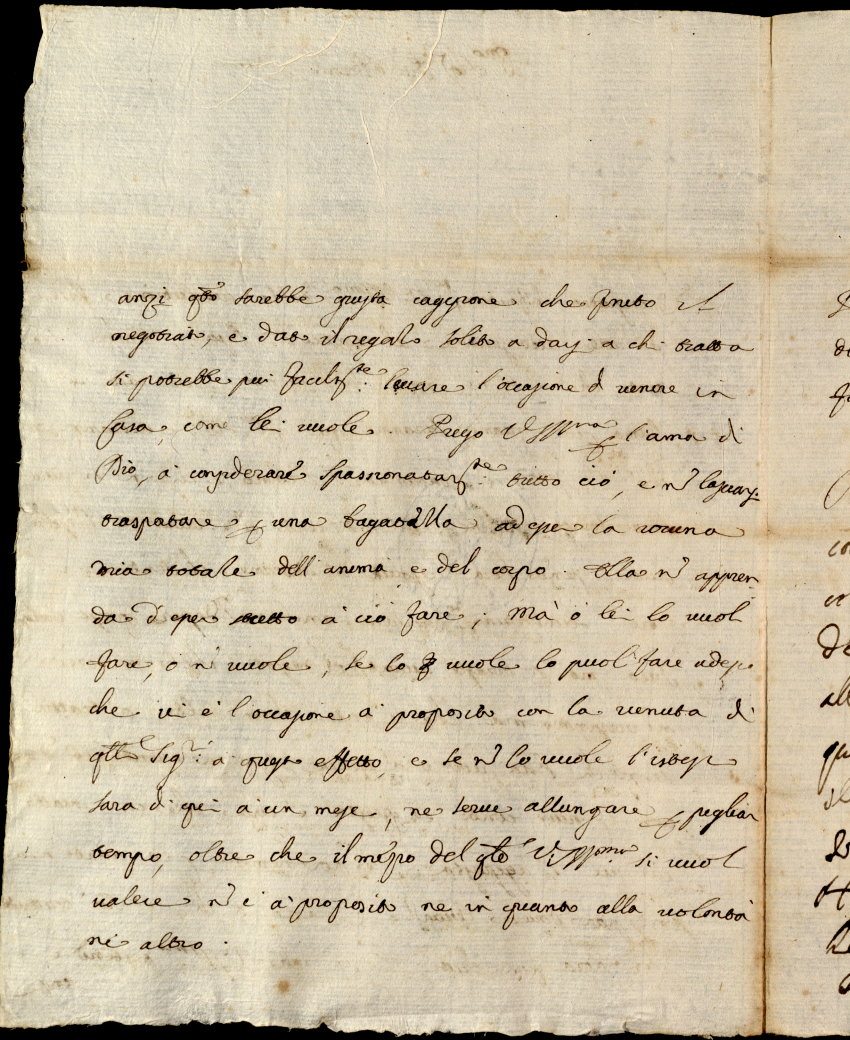 anzi qto sarebbe giusta caggione che finito il
negotiato, e dato il regalo solito a darsi a chi tratta
si potrebbe poi facilmte: levare l'occasione d venire in
Casa, come lei vuole. Prego VSSma p l'amor di
Dio, à considerare spassionatamte: tutto ciò, e nō lasciarsi
traspotare p una bagatella ad esser la rovina
mia totale dell'anima e del corpo. Ella nō appren-
da d'esser a ciò fare; Mà ò lei lo vuol
fare, ò nō vuole, se lo vuole lo puol fare adesso
che vi è l'occasione à proposito con la venuta di
qlli Sigri: à questo effetto, e se nō lo vuole l'istesso
sarà di qui à un mese, ne serve allungare p pigliar
tempo, oltre che il mezzo del qle VSSma si vuol
valere nō è à proposito ne in quanto alla volontà
nè altro.